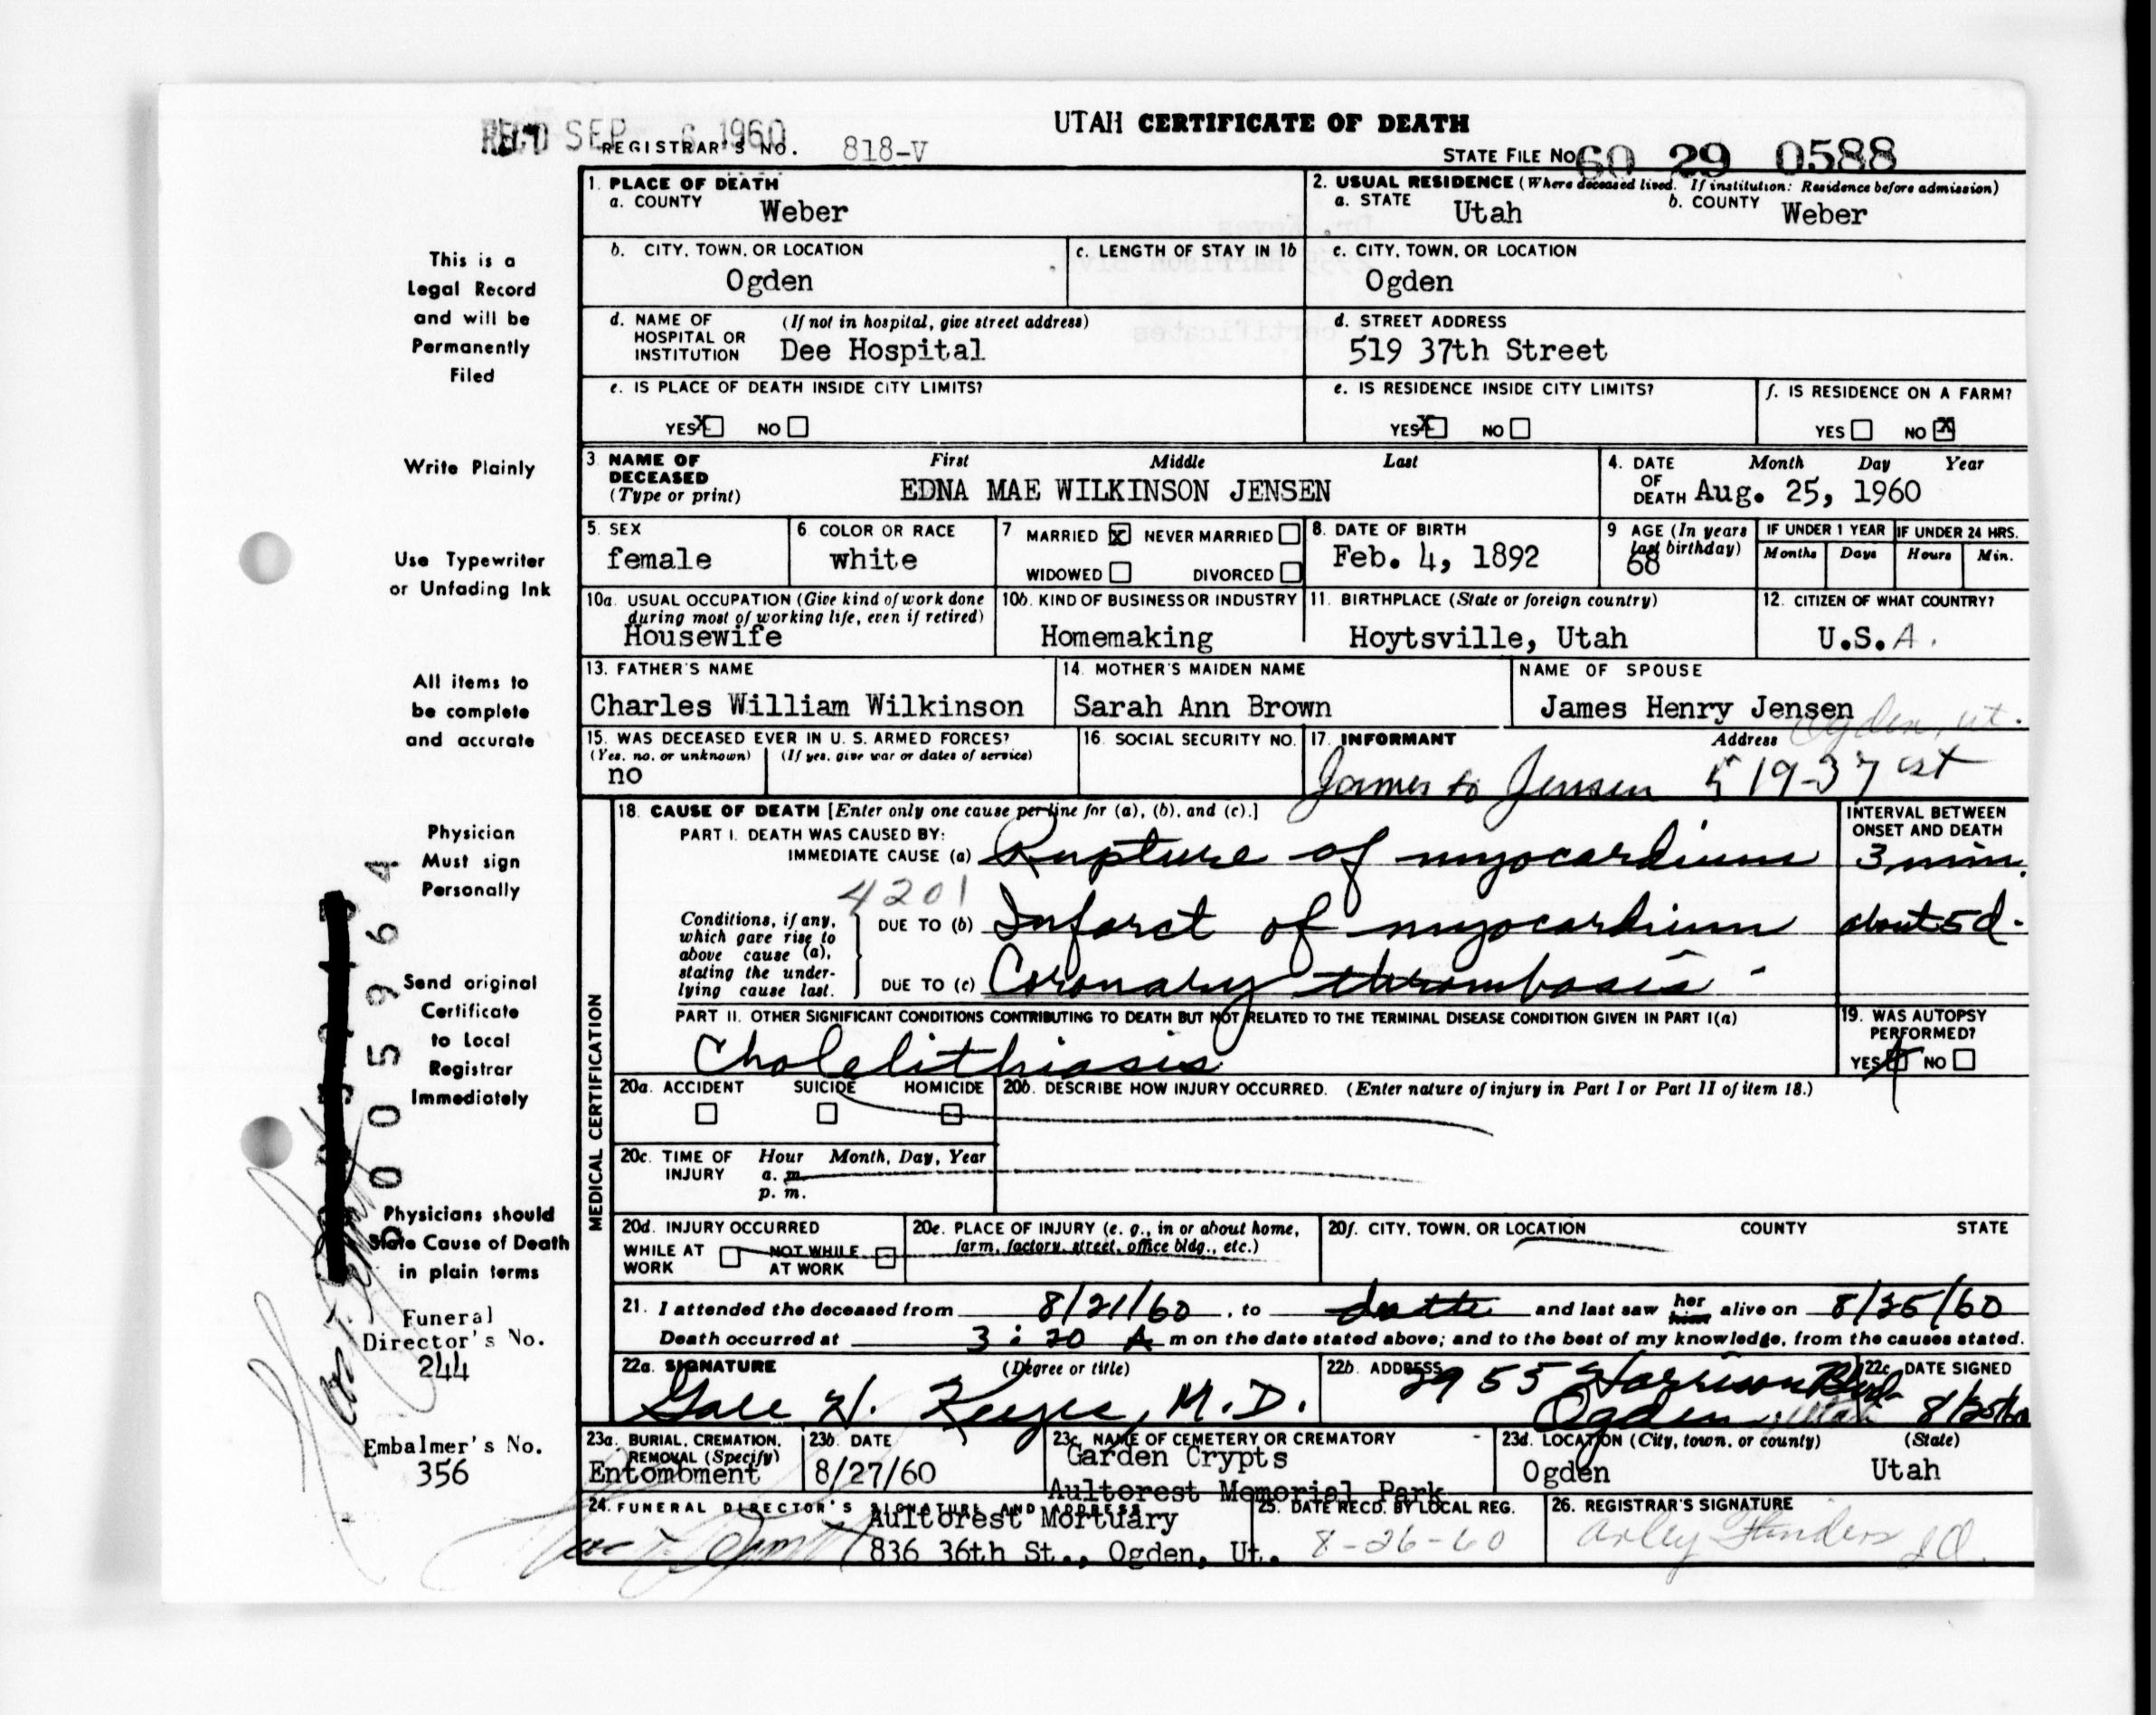 UTAH CERTIFICATE OF DEATH
REC'D SEP 6 1960
REGISTRAR'S NO. 818-V
STATE FILE NO. 60 29 0588
This is a
Legal Record
and will be
Permanently
Filed
Write Plainly
Use Typewriter
or Unfading Ink
All items to
be complete
and accurate
Physician
Must sign
Personally
Send original
Certificate
to Local
Registrar
Immediately
Physicians should
State Cause of Death
in plain terms
Funeral
Director's No.
244
Embalmer's No.
356
1. PLACE OF DEATH
a. COUNTY Weber
2. USUAL RESIDENCE (Where deceased lived. If institution: Residence before admission)
a. STATE Utah b. COUNTY Weber
b. CITY, TOWN, OR LOCATION
Ogden
c. LENGTH OF STAY IN 1b
c. CITY, TOWN, OR LOCATION
Ogden
d. NAME OF (If not in hospital, give street address)
HOSPITAL OR
INSTITUTION Dee Hospital
d. STREET ADDRESS
519 37th Street
e. IS PLACE OF DEATH INSIDE CITY LIMITS?
YES X NO
e. IS RESIDENCE INSIDE CITY LIMITS?
YES X NO
f. IS RESIDENCE ON A FARM?
YES NO X
3. NAME OF DECEASED (Type or print) First Middle Last
EDNA MAE WILKINSON JENSEN
4. DATE OF DEATH Month Day Year
Aug. 25, 1960
5. SEX
female
6. COLOR OR RACE
white
7 MARRIED X NEVER MARRIED
WIDOWED DIVORCED
8. DATE OF BIRTH
Feb. 4, 1892
9 AGE (In years last birthday)
68
IF UNDER 1 YEAR IF UNDER 24 HRS.
Months Days Hours Min.
10a. USUAL OCCUPATION (Give kind of work done
during most of working life, even if retired)
Housewife
10b. KIND OF BUSINESS OR INDUSTRY
Homemaking
11. BIRTHPLACE (State or foreign country)
Hoytsville, Utah
12. CITIZEN OF WHAT COUNTRY?
U.S.A.
13. FATHER'S NAME
Charles William Wilkinson
14. MOTHER'S MAIDEN NAME
Sarah Ann Brown
NAME OF SPOUSE
James Henry Jensen
15. WAS DECEASED EVER IN U. S. ARMED FORCES?
(Yes, no, or unknown) (If yes, give war or dates of service)
no
16. SOCIAL SECURITY NO.
17. INFORMANT Address Ogden, ut.
James H Jensen 519-37 st
MEDICAL CERTIFICATION
18. CAUSE OF DEATH [Enter only one cause per line for (a), (b), and (c).]
PART I. DEATH WAS CAUSED BY:
IMMEDIATE CAUSE (a) Rupture of myocardium
INTERVAL BETWEEN
ONSET AND DEATH
3 min.
4201
Conditions, if any,
which gave rise to
above cause (a),
stating the under-
lying cause last.
DUE TO (b) Infarct of myocardium about 5 d.
DUE TO (c) Coronary thrombosis
PART II. OTHER SIGNIFICANT CONDITIONS CONTRIBUTING TO DEATH BUT NOT RELATED TO THE TERMINAL DISEASE CONDITION GIVEN IN PART I(a)
Cholelithiasis
19. WAS AUTOPSY
PERFORMED?
YES NO
20a. ACCIDENT SUICIDE HOMICIDE
20b. DESCRIBE HOW INJURY OCCURRED. (Enter nature of injury in Part I or Part II of item 18.)
20c. TIME OF INJURY Hour Month, Day, Year
a. m.
p. m.
20d. INJURY OCCURRED
WHILE AT WORK NOT WHILE AT WORK
20e. PLACE OF INJURY (e. g., in or about home,
farm, factory, street, office bldg., etc.)
20f. CITY, TOWN, OR LOCATION COUNTY STATE
21. I attended the deceased from 8/21/60, to death and last saw her him alive on 8/25/60
Death occurred at 3:20 A m on the date stated above; and to the best of my knowledge, from the causes stated.
22a. SIGNATURE (Degree or title)
M.D.
22b. ADDRESS 2955 Harrison Blvd
Ogden, Utah
22c. DATE SIGNED
23a. BURIAL, CREMATION,
REMOVAL (Specify)
Entombment
23b. DATE
8/27/60
23c. NAME OF CEMETERY OR CREMATORY
Garden Crypts
Aultorest Memorial Park
23d. LOCATION (City, town, or county) (State)
Ogden Utah
24. FUNERAL DIRECTOR'S SIGNATURE AND ADDRESS
Aultorest Mortuary
836 36th St., Ogden, Ut.
25. DATE RECD. BY LOCAL REG.
8-26-60
26. REGISTRAR'S SIGNATURE